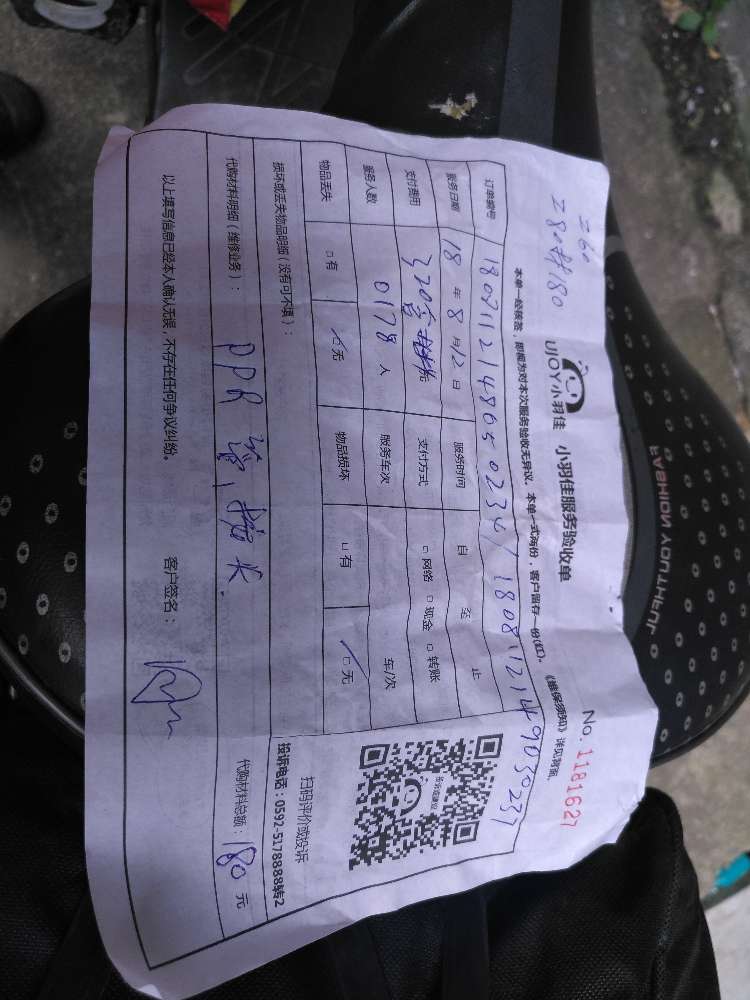 260
280材180
UJOY小羽佳 小羽佳服务验收单
No. 1181627
本单一经核签，即视为对本次服务验收无异议。本单一式两份，客户留存一份(红)。《维保须知》详见背面。
订单编号
服务日期 18 年 8 月 12 日 服务时间 自 至 止
支付费用 320含材料 元 支付方式 □ 网络 □ 现金 □ 转账
服务人数 0178 人 服务车次 车/次
物品丢失 □ 有 □ 无 物品损坏 □ 有 □ 无
扫码评价或投诉
损坏或丢失物品明细（没有可不填）：
投诉电话：0592-5178888转2
代购材料明细（维修业务）： PPR 管，接头. 代购材料总额：180 元
以上填写信息已经本人确认无误，不存在任何争议纠纷。 客户签名：